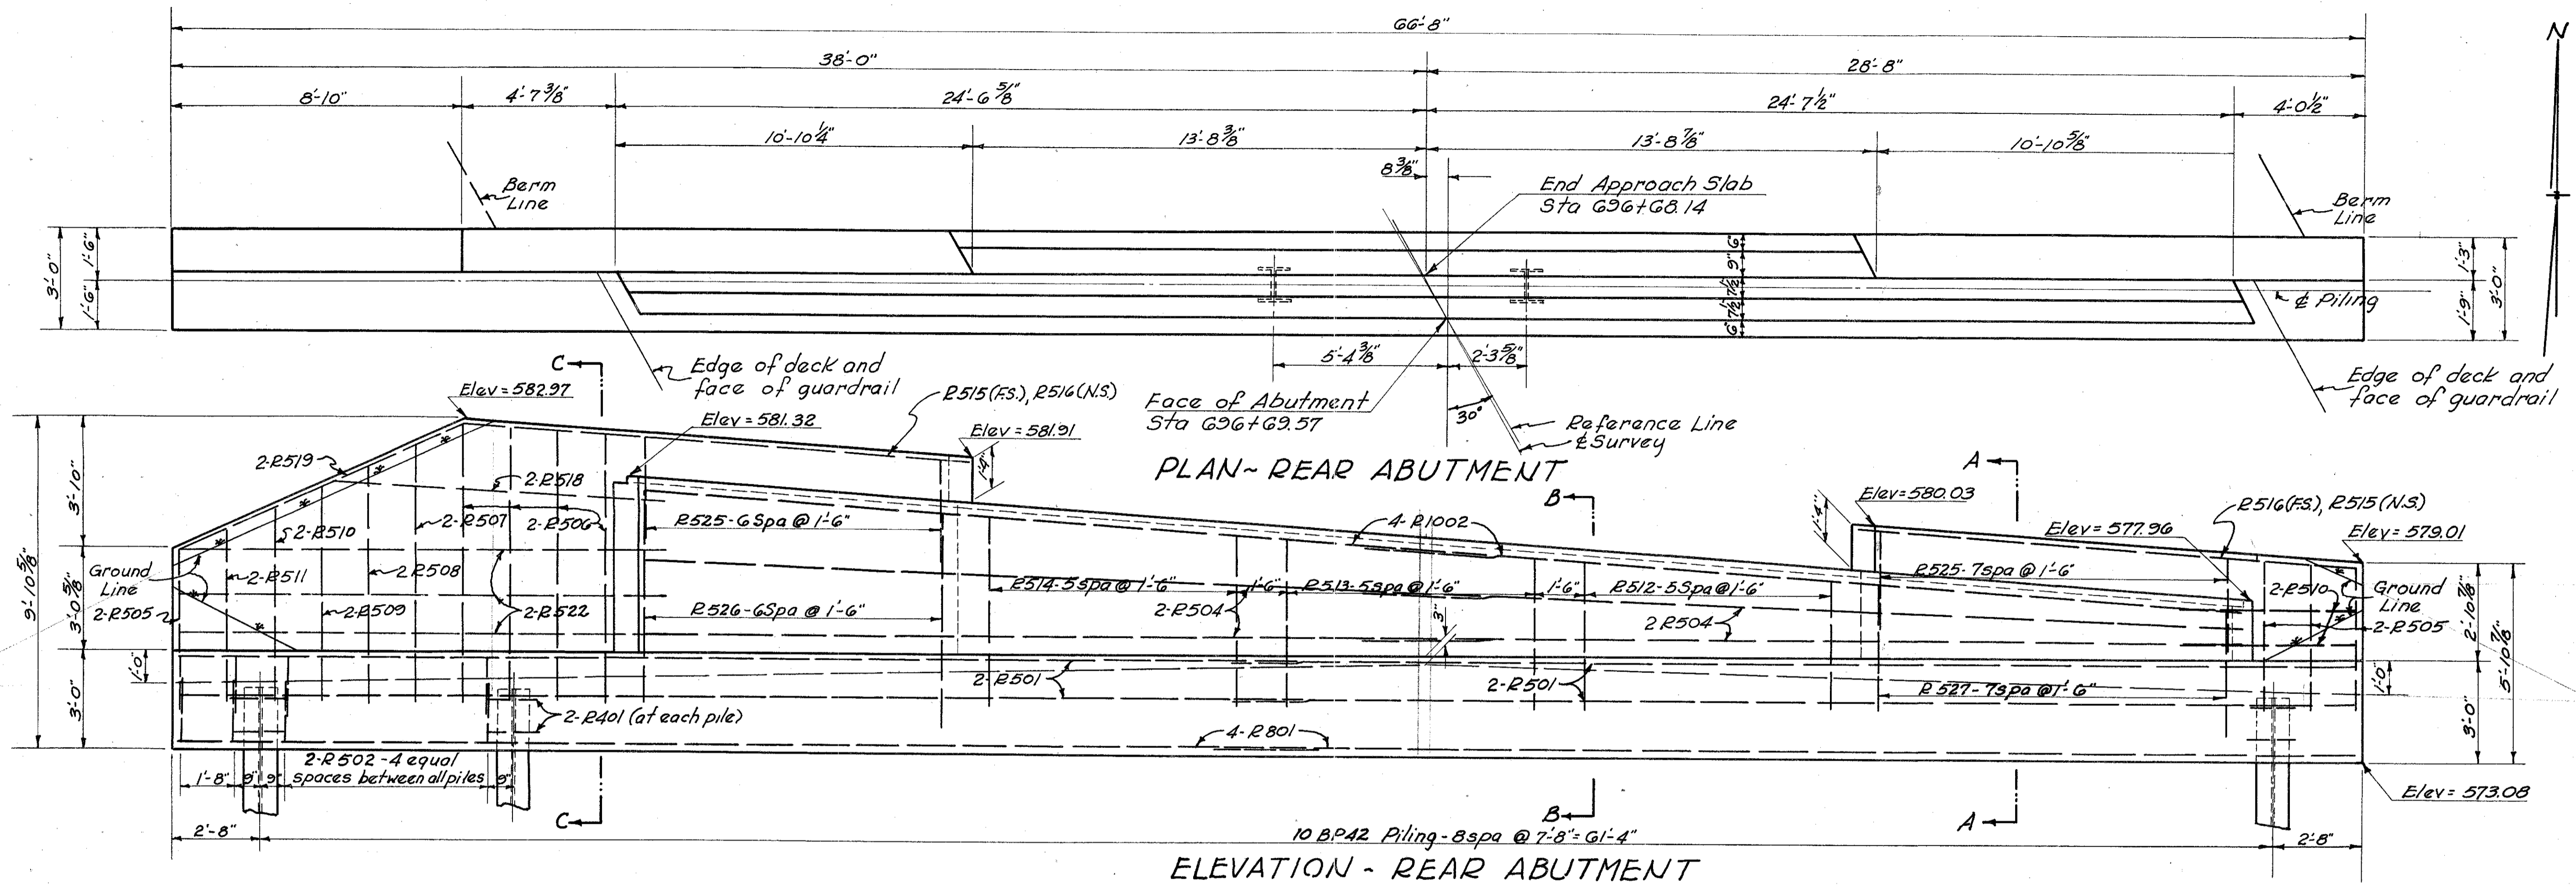 66'-8"
N
38'-0"
28'-8"
8'-10"
4'-7 3/8"
24'-6 5/8"
24'-7 1/2"
4'-0 1/2"
10'-10 1/4"
13'-8 3/8"
13'-8 7/8"
10'-10 5/8"
8 3/8"
Berm
Line
End Approach Slab
Sta 696+68.14
Berm
Line
3'-0"
1'-6"
1'-6"
6"
9"
7 1/2"
7 1/2"
6"
1'-3"
1'-9"
3'-0"
℄ Piling
5'-4 3/8"
2'-3 5/8"
Edge of deck and
face of guardrail
Face of Abutment
Sta 696+69.57
30°
Reference Line
℄ Survey
Edge of deck and
face of guardrail
PLAN ~ REAR ABUTMENT
C
Elev = 582.97
R515 (F.S.), R516 (N.S.)
Elev = 581.32
Elev = 581.91
1'-4"
B
A
Elev = 580.03
1'-4"
R516 (F.S.), R515 (N.S.)
Elev = 577.96
Elev = 579.01
9'-10 5/8"
3'-10"
3'-0 5/8"
3'-0"
1'-0"
2-R519
2-R518
2-R510
2-R507
2-R506
R525-6 Spa @ 1'-6"
4-R1002
R525-7 spa @ 1'-6"
Ground
Line
2-R511
2-R508
R514-5 spa @ 1'-6"
1'-6"
R513-5 spa @ 1'-6"
1'-6"
R512-5 Spa @ 1'-6"
2-R510
Ground
Line
2-R505
2-R509
2-R522
R526-6 Spa @ 1'-6"
2-R504
3"
2 R504
2-R505
2'-10 7/8"
5'-10 7/8"
2-R501
2-R501
R527-7 spa @ 1'-6"
1'-0"
3'-0"
2-R401 (at each pile)
4-R801
2-R502-4 equal
spaces between all piles
1'-8"
9"
9"
9"
C
B
A
Elev = 573.08
2'-8"
10 BP42 Piling - 8 spa @ 7'-8" = 61'-4"
2'-8"
ELEVATION - REAR ABUTMENT